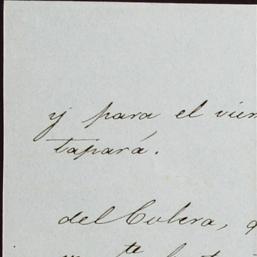 y para el vier
tapará.
del Colera,